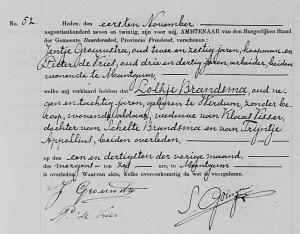 No. 52. Heden, den eersten November
negentienhonderd zeven en twintig, zijn voor mij, AMBTENAAR van den Burgerlijken Stand
der Gemeente Baarderadeel, Provincie Friesland, verschenen:
Jentje Groeuwstra, oud twee en zestig jaren, koopman en
Pieter de Vries, oud drie en dertig jaren, arbeider, beiden
wonende te Mantgum,
welke mij verklaard hebben dat Lolkje Brandsma, oud ne-
gen en tachtig jaren, geboren te Oterdum, zonder be-
roep, wonende aldaar, weduwe van Klaas Visser,
dochter van Schelte Brandsma en van Trijntje
Appollius, beiden overleden,
op den een en dertigsten der vorige maand,
des morgens ten zes ure, te Mantgum
is overleden. Waarvan akte, welke overeenkomstig de wet is voorgelezen.
P. de Vries.